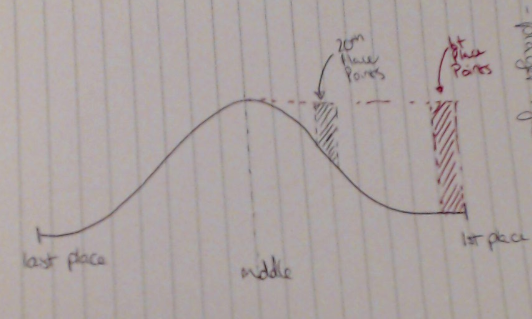 20th
Place
Points
1st
Place
Points
last place
middle
1st place